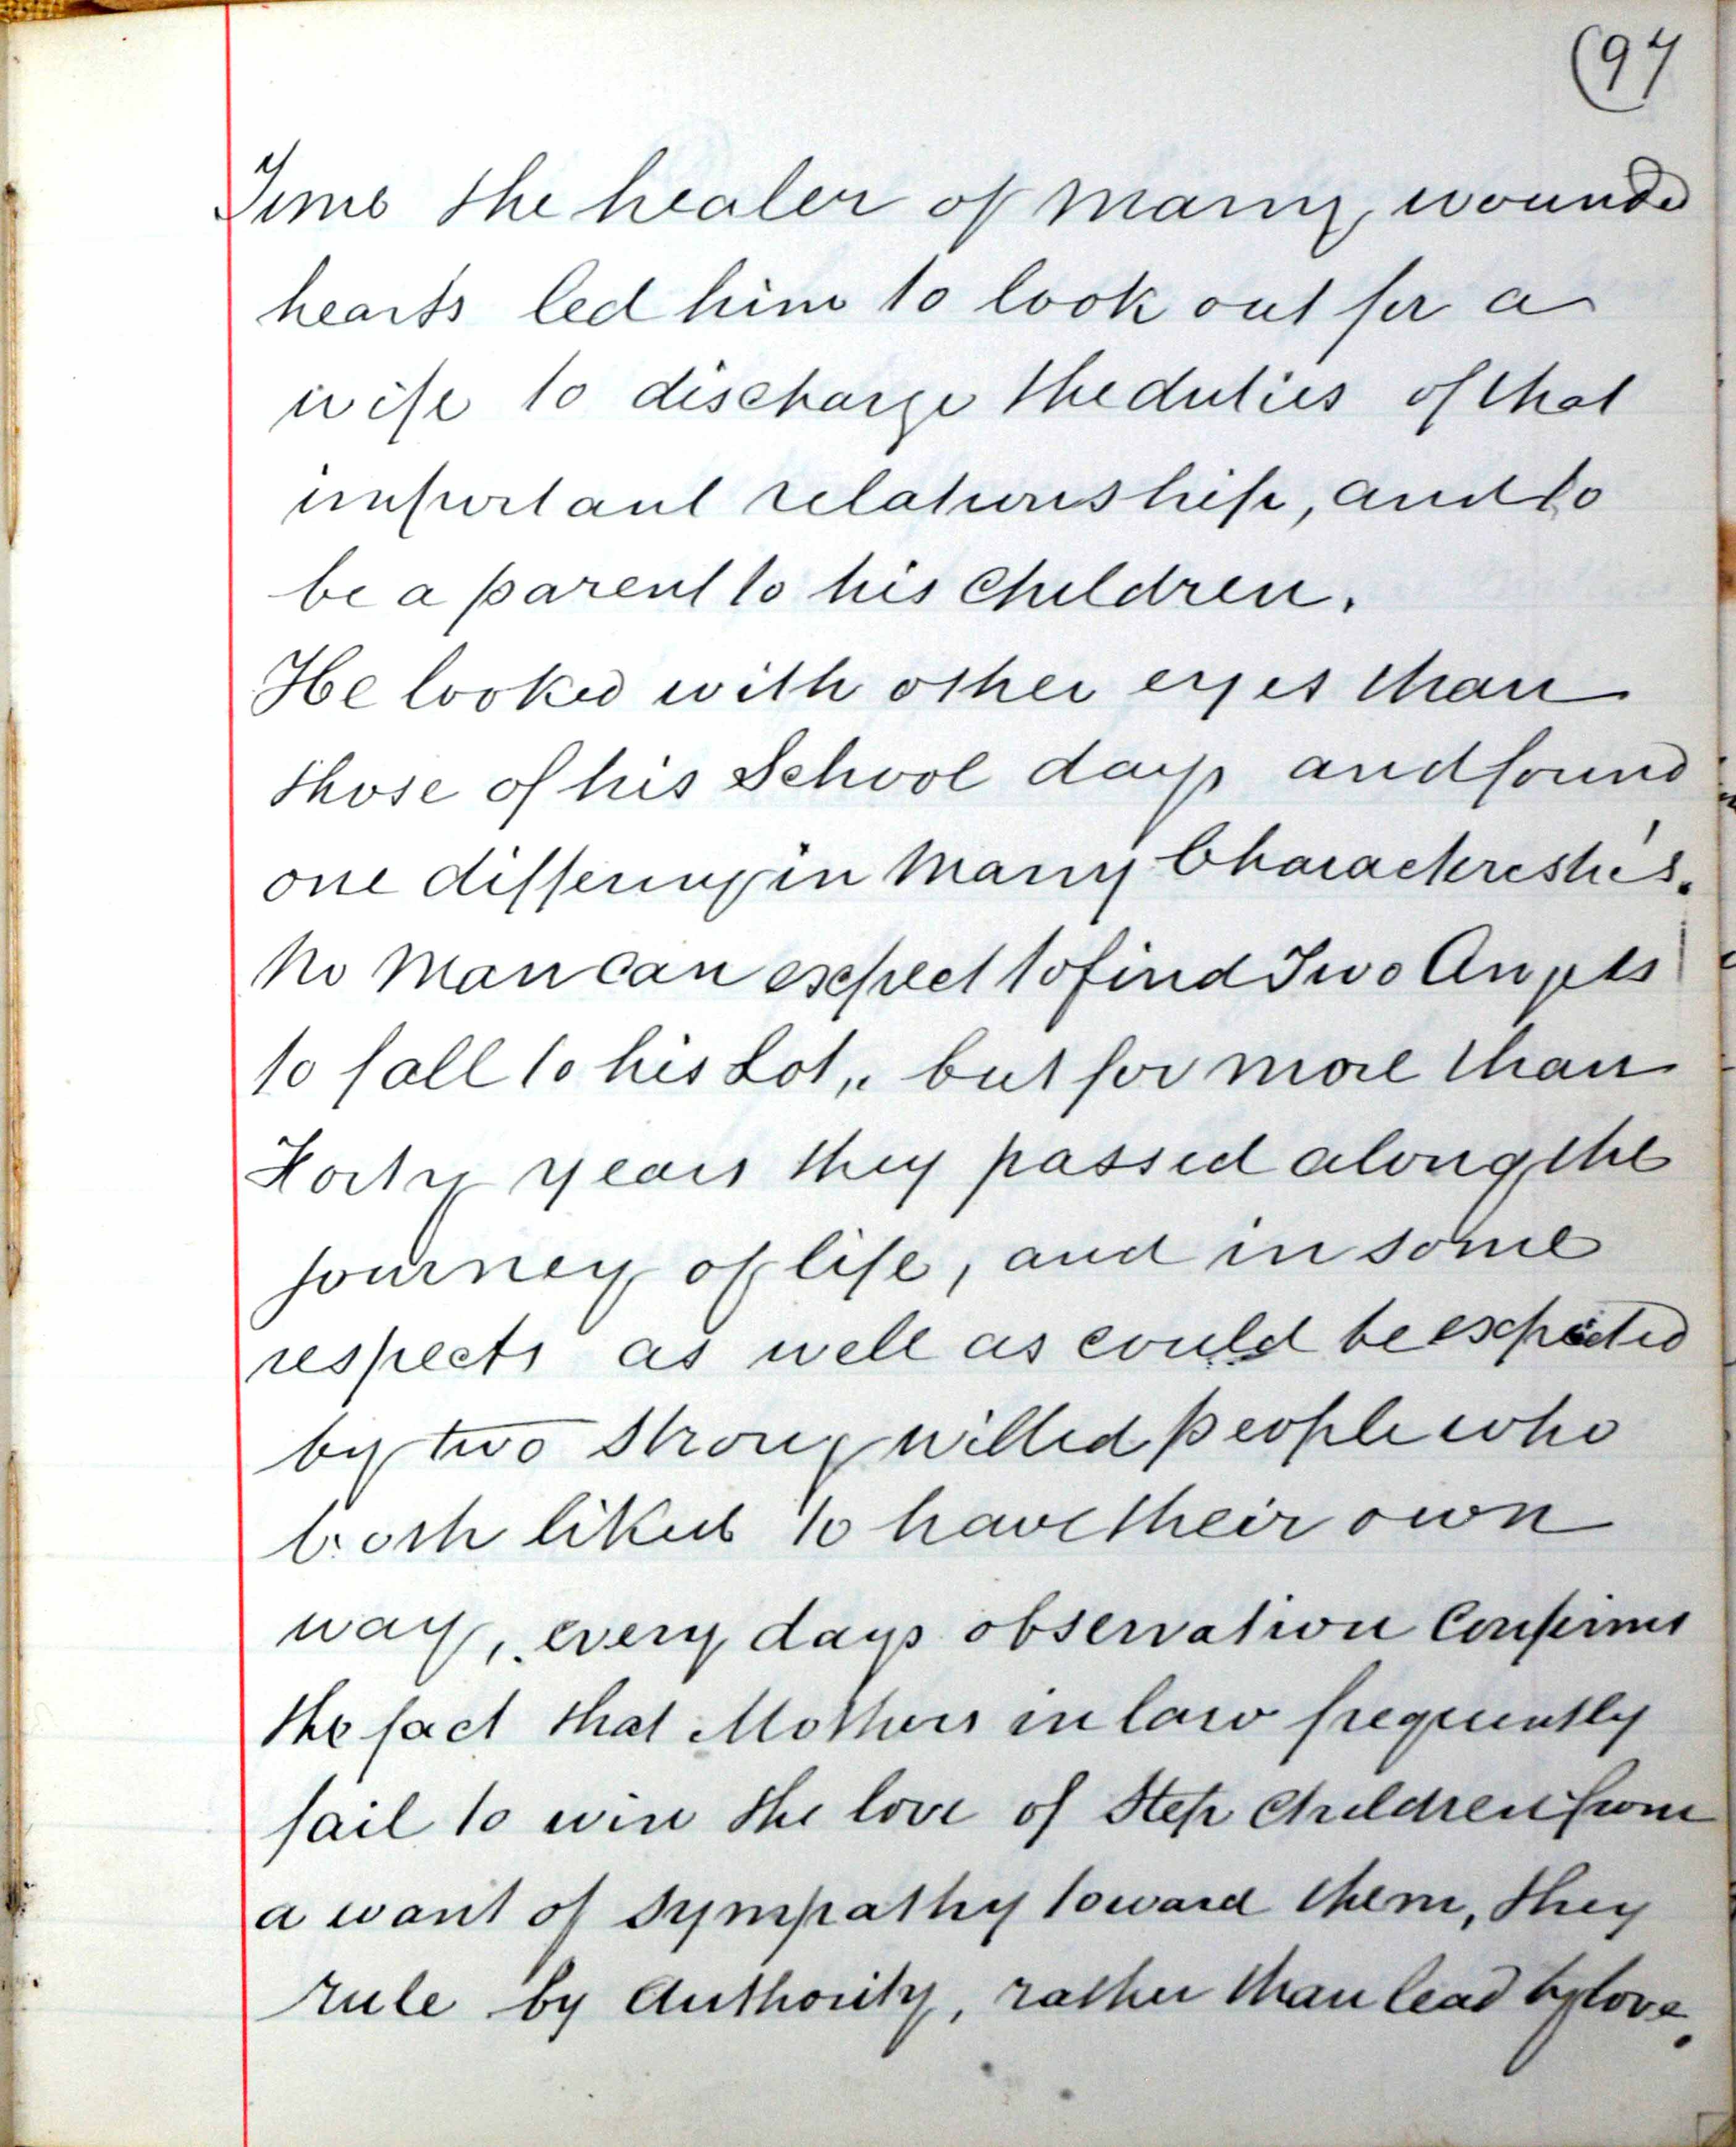 (94
Time the healer of many wounded
hearts led him to look out for a
wife to discharge the duties of that
important relationship, and to
be a parent to his Children.
He looked with other eyes than
those of his School days and found
one differing in Many Characteristics.
No Man can expect to find Two Angels
to fall to his Lot, but for more than
Forty years they passed along the
journey of life, and in some
respects as well as could be expected
by two Strong willed people who
both liked to have their own
way, every days observation Confirms
the fact that Mothers in law frequently
fail to win the love of Step Children from
a want of Sympathy toward them, they
rule by Authority, rather than lead by love.